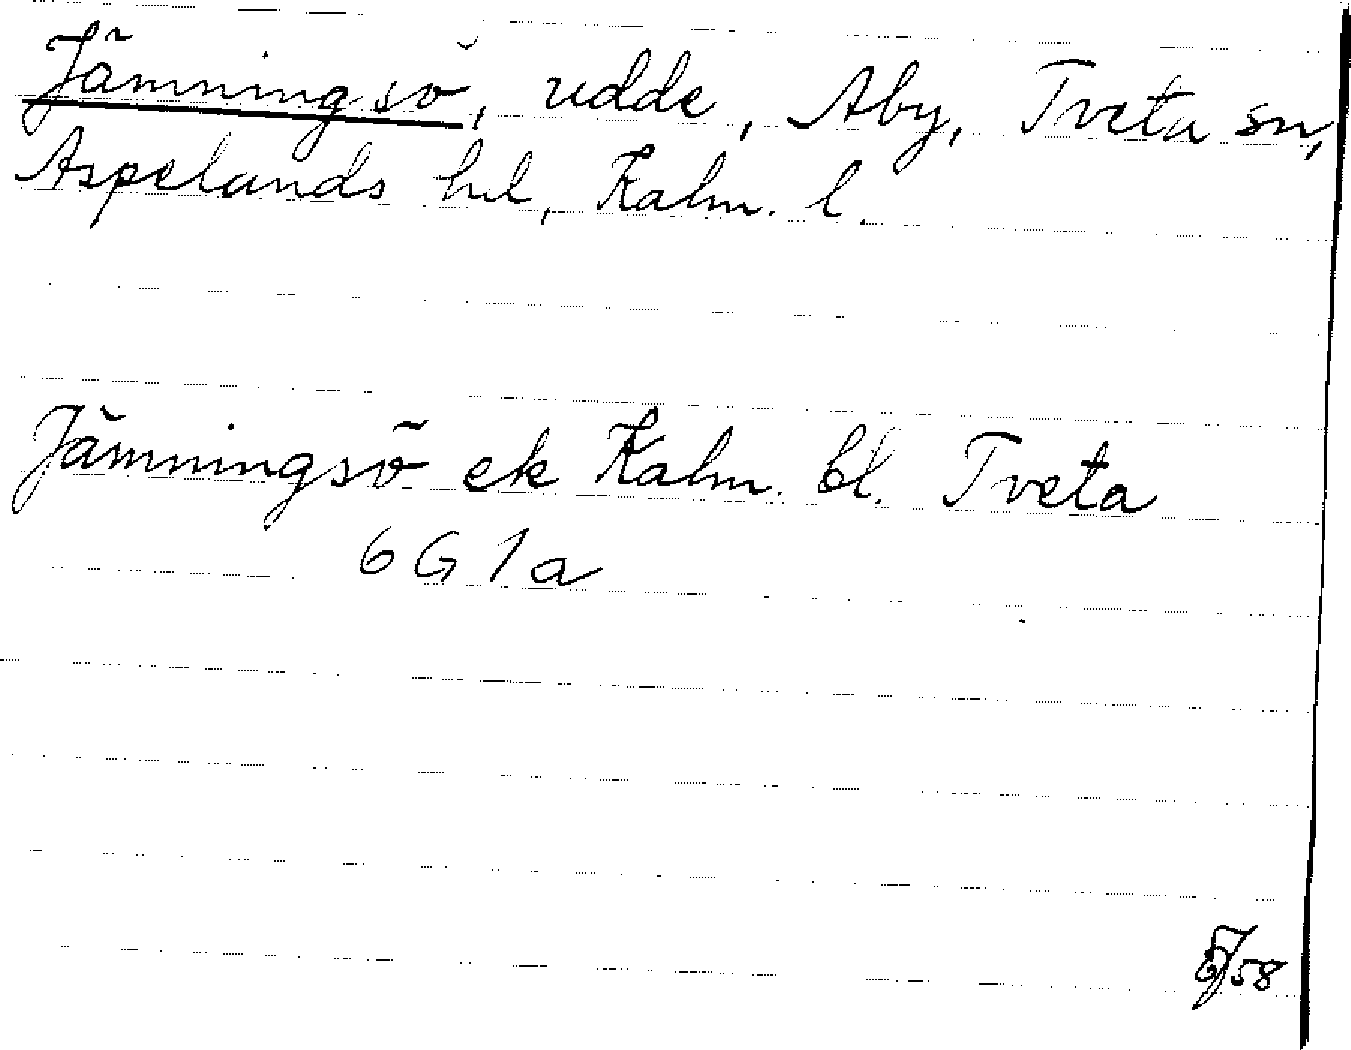 Jämningsö, udde, Åby, Tveta sn,
Aspelands hd, Kalm. l.
Jämningsö ek Kalm. bl. Tveta
6 G 1 a
58